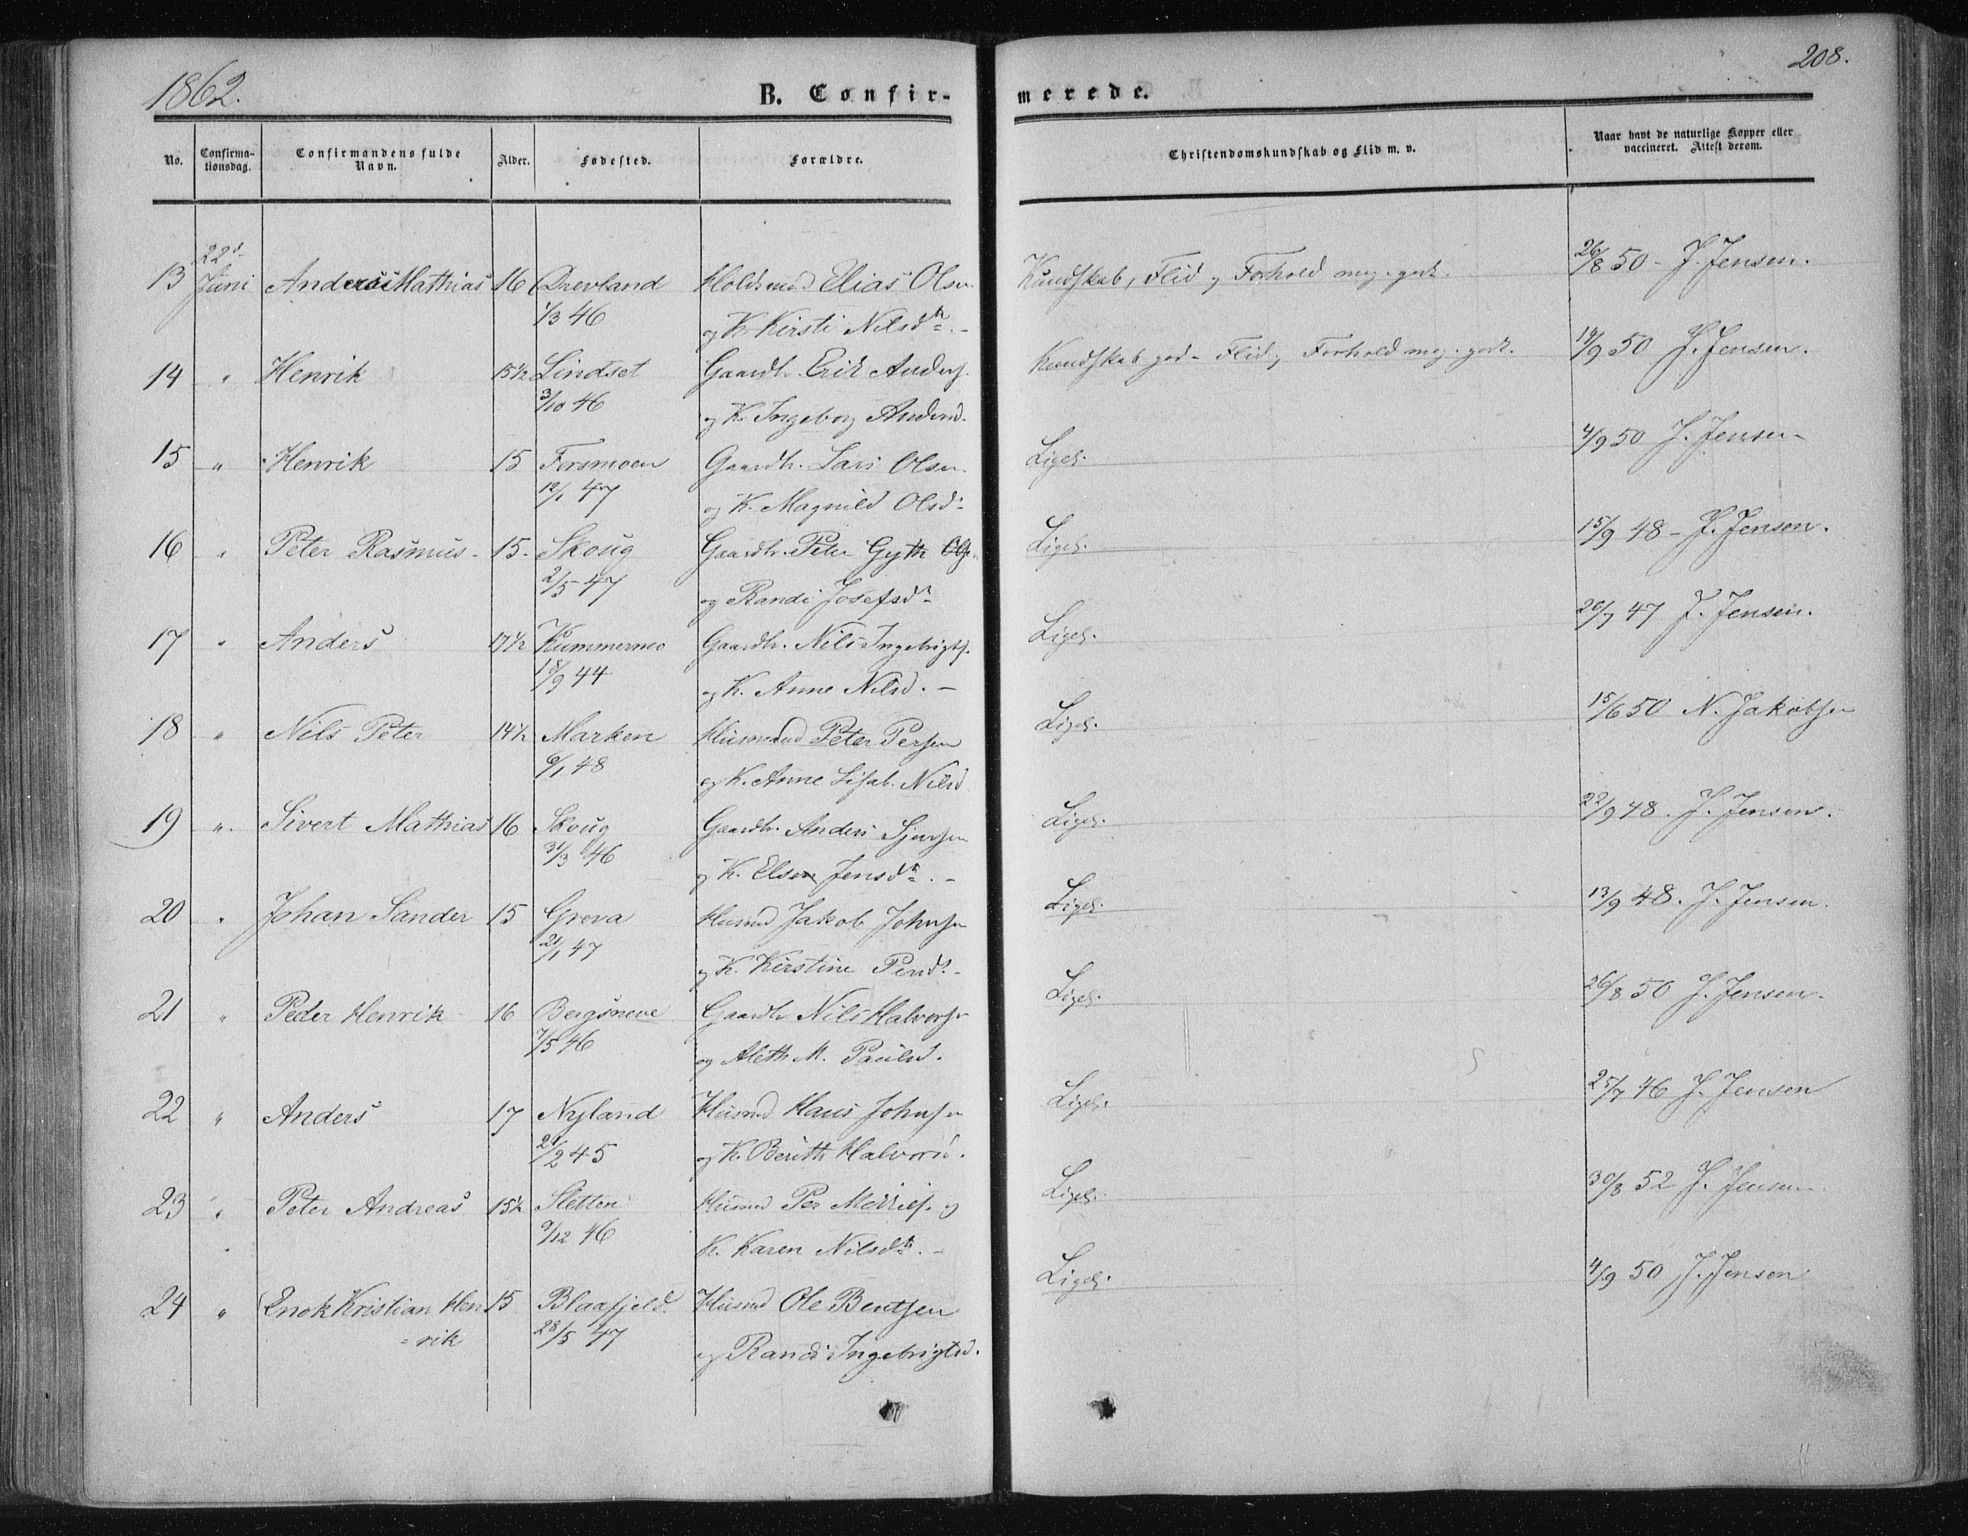 1862.
208.
B. Confirmerede.
No. Confirmationsdag. Confirmandens fulde Navn. Alder. Fødested. Forældre. Christendomskundskab og Flid m. v. Naar havt de naturlige Kopper eller vaccineret. Attest derom.
22d
13 Juni Anders Mathias 16 Drevland Holdsmd Elias Olsen Kundskab, Flid og Forhold meg. godt. 26/8 50 - J. Jensen.
1/3 46 og K. Kirsti Nilsdtr. -
14 " Henrik 15 1/2 Lindset Gaardbr. Erik Anders. Kundskab god - Flid og Forhold meg. godt. 14/9 50 J. Jensen.
3/10 46 og K. Ingeborg Andersd.
15 " Henrik 15 Forsmoen Gaardbr. Lars Olsen Ligel. 4/9 50 J. Jensen
12/1 47 og K. Magnild Olsd.
16 " Peter Rasmus - 15 - Skoug Gaardbr. Peter Gyth Ols. Ligel. 15/9 48 - J. Jensen.
2/5 47 og Randi Josefsd.
17 " Anders 17 1/2 Kummermo Gaardbr. Nils Ingebrigts. Ligel. 20/7 47 J. Jensen.
18/9 44 og K. Anne Nilsd. -
18 " Nils Peter 14 1/2 Marken Husmand Peter Persen Ligel. 15/6 50 N. Jakobsen
6/1 48 og K. Anne Lisab. Nilsd
19 " Sivert Mathias 16 Skoug Gaardbr. Anders Sjursen Ligel. 22/9 48. J. Jensen.
31/3 46 og K. Else Jensdtr. -
20 " Johan Sander 15 Greva Husmd Jakob Johnsen Ligel. 13/9 48. J. Jensen.
21/1 47 og K. Kirstine Persd. -
21 " Peder Henrik 16 Bergsneve Gaardbr Nils Halvors. Ligel. 26/8 50 J. Jensen.
7/5 46 og Aleth M. Paulsd.
22 " Anders 17 Nyland Husmd Hans Johnsen Ligel. 25/7 46 J. Jensen
21/2 45 og K. Berith Halvorsd.
23 " Peter Andreas 15 1/2 Sletten Husmd Per Mortens. og Ligel. 30/8 52 J. Jensen
9/12 46 K. Karen Nilsdtr. -
24 " Enok Kristian Hen 15 Blaafjeld. Husmd Ole Bentsen Ligel. 4/9 50 J. Jensen
= rik 28/5 47 og Randi Ingebrigtsd.